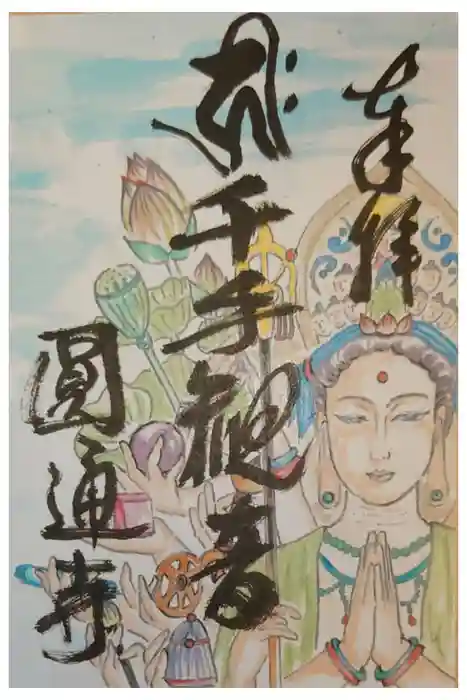 奉拝
𑖮𑖿𑖨𑖱𑖾 千手観音
圓通寺